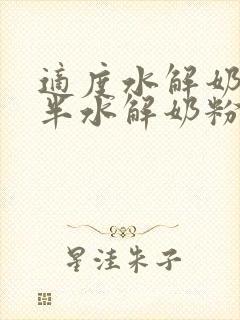 適度水解奶
半水解奶粉
星洼朱子